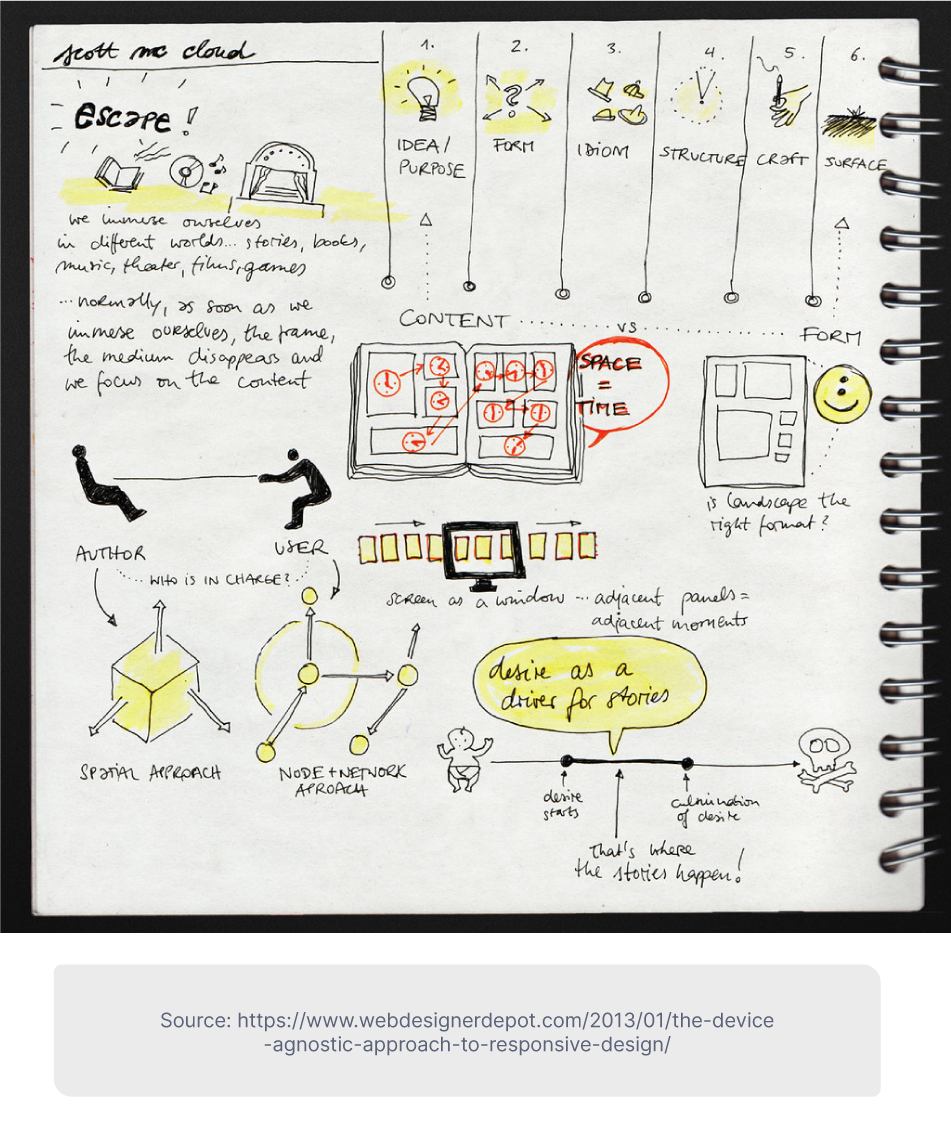 scott mc cloud
escape!
we immerse ourselves
in different worlds... stories, books,
music, theater, films, games
... normally, as soon as we
immerse ourselves, the frame,
the medium disappears and
we focus on the content
1.
IDEA/
PURPOSE
2.
FORM
3.
IDIOM
4.
STRUCTURE
5.
CRAFT
6.
SURFACE
CONTENT
VS
FORM
SPACE
=
TIME
is landscape the
right format?
AUTHOR
USER
WHO IS IN CHARGE?
SPATIAL APPROACH
NODE + NETWORK
APROACH
screen as a window ... adjacent panels =
adjacent moments
desire as a
driver for stories
desire
starts
culmination
of desire
That's where
the stories happen!
Source: https://www.webdesignerdepot.com/2013/01/the-device
-agnostic-approach-to-responsive-design/